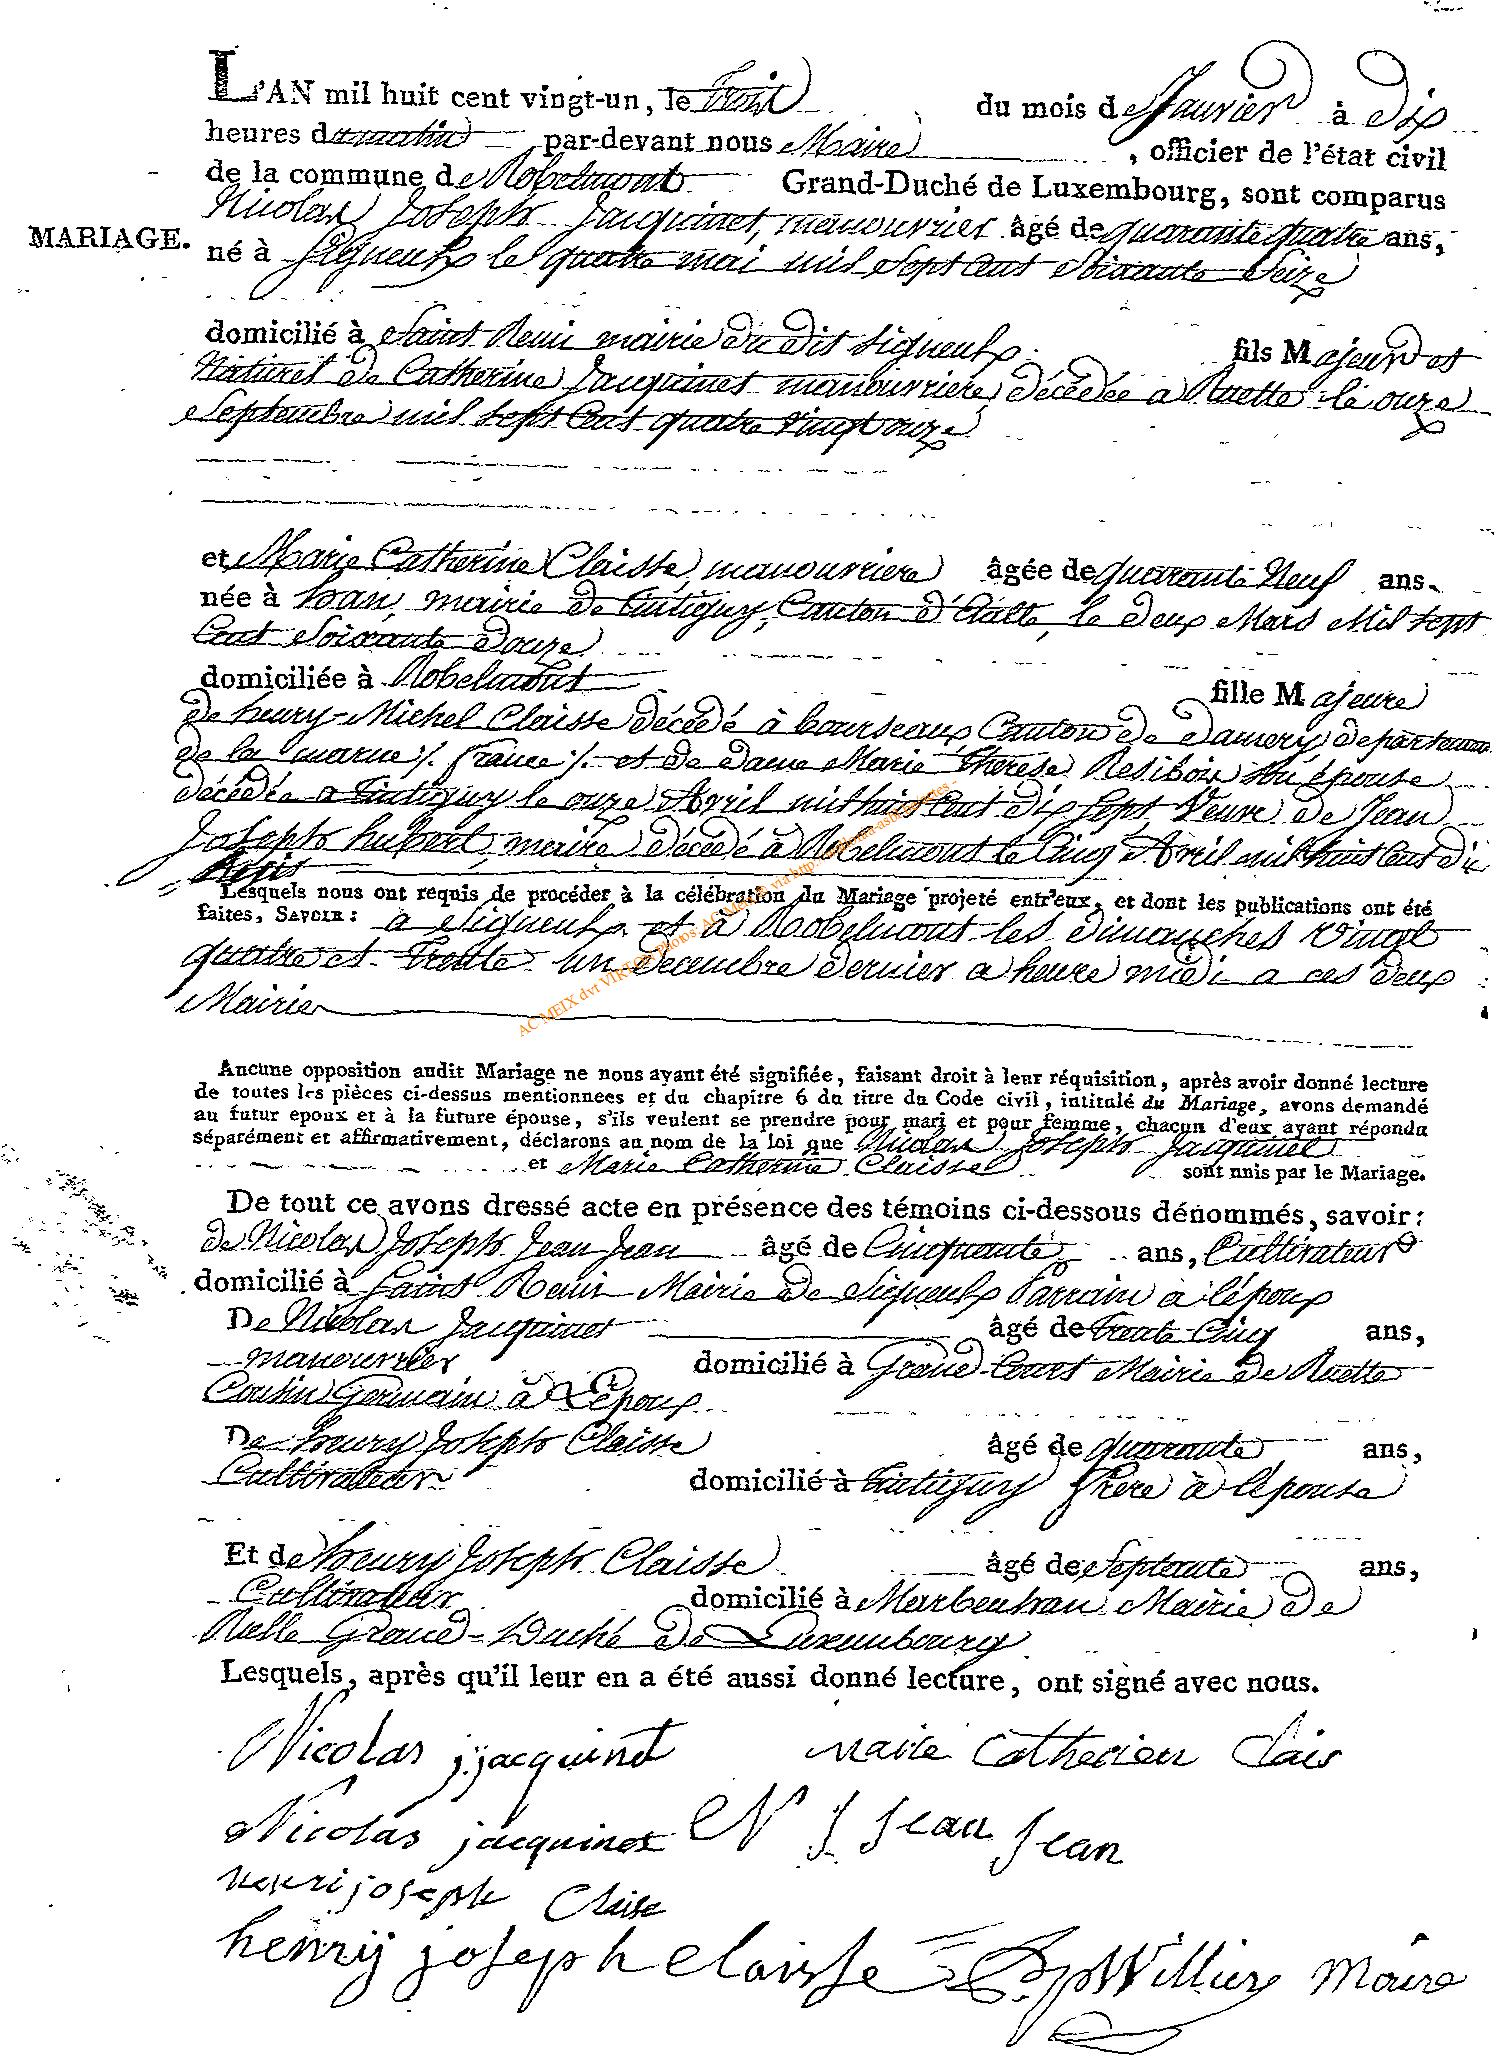 L'AN mil huit cent vingt-un, le Trois du mois de Janvier à Dix
heures du matin par-devant nous Maire , officier de l'état civil
de la commune de Robelmont Grand-Duché de Luxembourg, sont comparus
MARIAGE.
Nicolas Joseph Jacquinet, manouvrier âgé de quarante quatre ans,
né à Signeulx le quatre mai mil sept cent soixante seize
domicilié à Saint Remi mairie du dit Signeulx fils Majeur et
Naturel de Catherine Jacquinet manouvriere, décédée a Ruette le onze
Septembre mil sept cent quatre vingt onze
et Marie Catherine Claisse, manouvriere âgée de quarante Neuf ans.
née à han, mairie de tintigny, Canton d'Etalle, le deux Mars Mil sept
Cent soixante douze
domiciliée à Robelmont fille Majeure
de henry-Michel Claisse décédé à bourseaux Canton de damery departement
de la marne /. france /. et de dame Marie Therese Resibois son épouse
décédée a tintigny le onze Avril mil huit Cent dix sept Veuve de Jean
Joseph hubert, maire, décédé à Robelmont le Cinq Avril mil huit Cent dix
Lesquels nous ont requis de procéder à la célébration du Mariage projeté entr'eux, et dont les publications ont été
faites, SAVOIR : a Signeulx et à Robelmont les dimanches Vingt
quatre et Trente un decembre dernier a heure midi a ces deux
Mairies
AC MEIX dvt VIRTON Photos: AC Meix via http://
Aucune opposition audit Mariage ne nous ayant été signifiée, faisant droit à leur réquisition, après avoir donné lecture
de toutes les pièces ci-dessus mentionnees et du chapitre 6 du titre du Code civil, intitulé du Mariage, avons demandé
au futur epoux et à la future épouse, s'ils veulent se prendre pour mari et pour femme, chacun d'eux ayant répondu
séparément et affirmativement, déclarons au nom de la loi que Nicolas Joseph Jacquinet
et Marie Catherine Claisse sont unis par le Mariage.
De tout ce avons dressé acte en présence des témoins ci-dessous dénommés, savoir :
de Nicolas Joseph Jean Jean âgé de Cinquante ans, Cultivateur
domicilié à Saint Remi Mairie de Signeulx Parrain à l'époux
De Nicolas Jacquinet âgé de trente Cinq ans,
manouvrier domicilié à Grand Court Mairie de Ruette
Cousin Germain à L'époux
De henry Joseph Claisse âgé de quarante ans,
Cultivateur domicilié à tintigny frere à l'épouse
Et de henry Joseph Claisse âgé de Septante ans,
Cultivateur domicilié à Marbenhan Mairie de
Rulle Grand-Duché de Luxembourg
Lesquels, après qu'il leur en a été aussi donné lecture, ont signé avec nous.
Nicolas j jacquinet marie Catherien Clais
Nicolas jacquinet N J Jean Jean
henri joseph Claise
henrij joseph Claisse Willier Maire